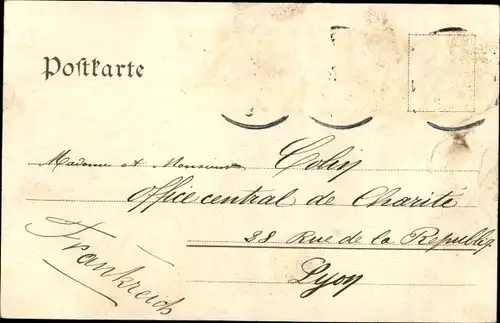 Postkarte
Madame et Monsieur Colin
Office central de Charité
38 Rue de la Republiq.
Lyon
Frankreich